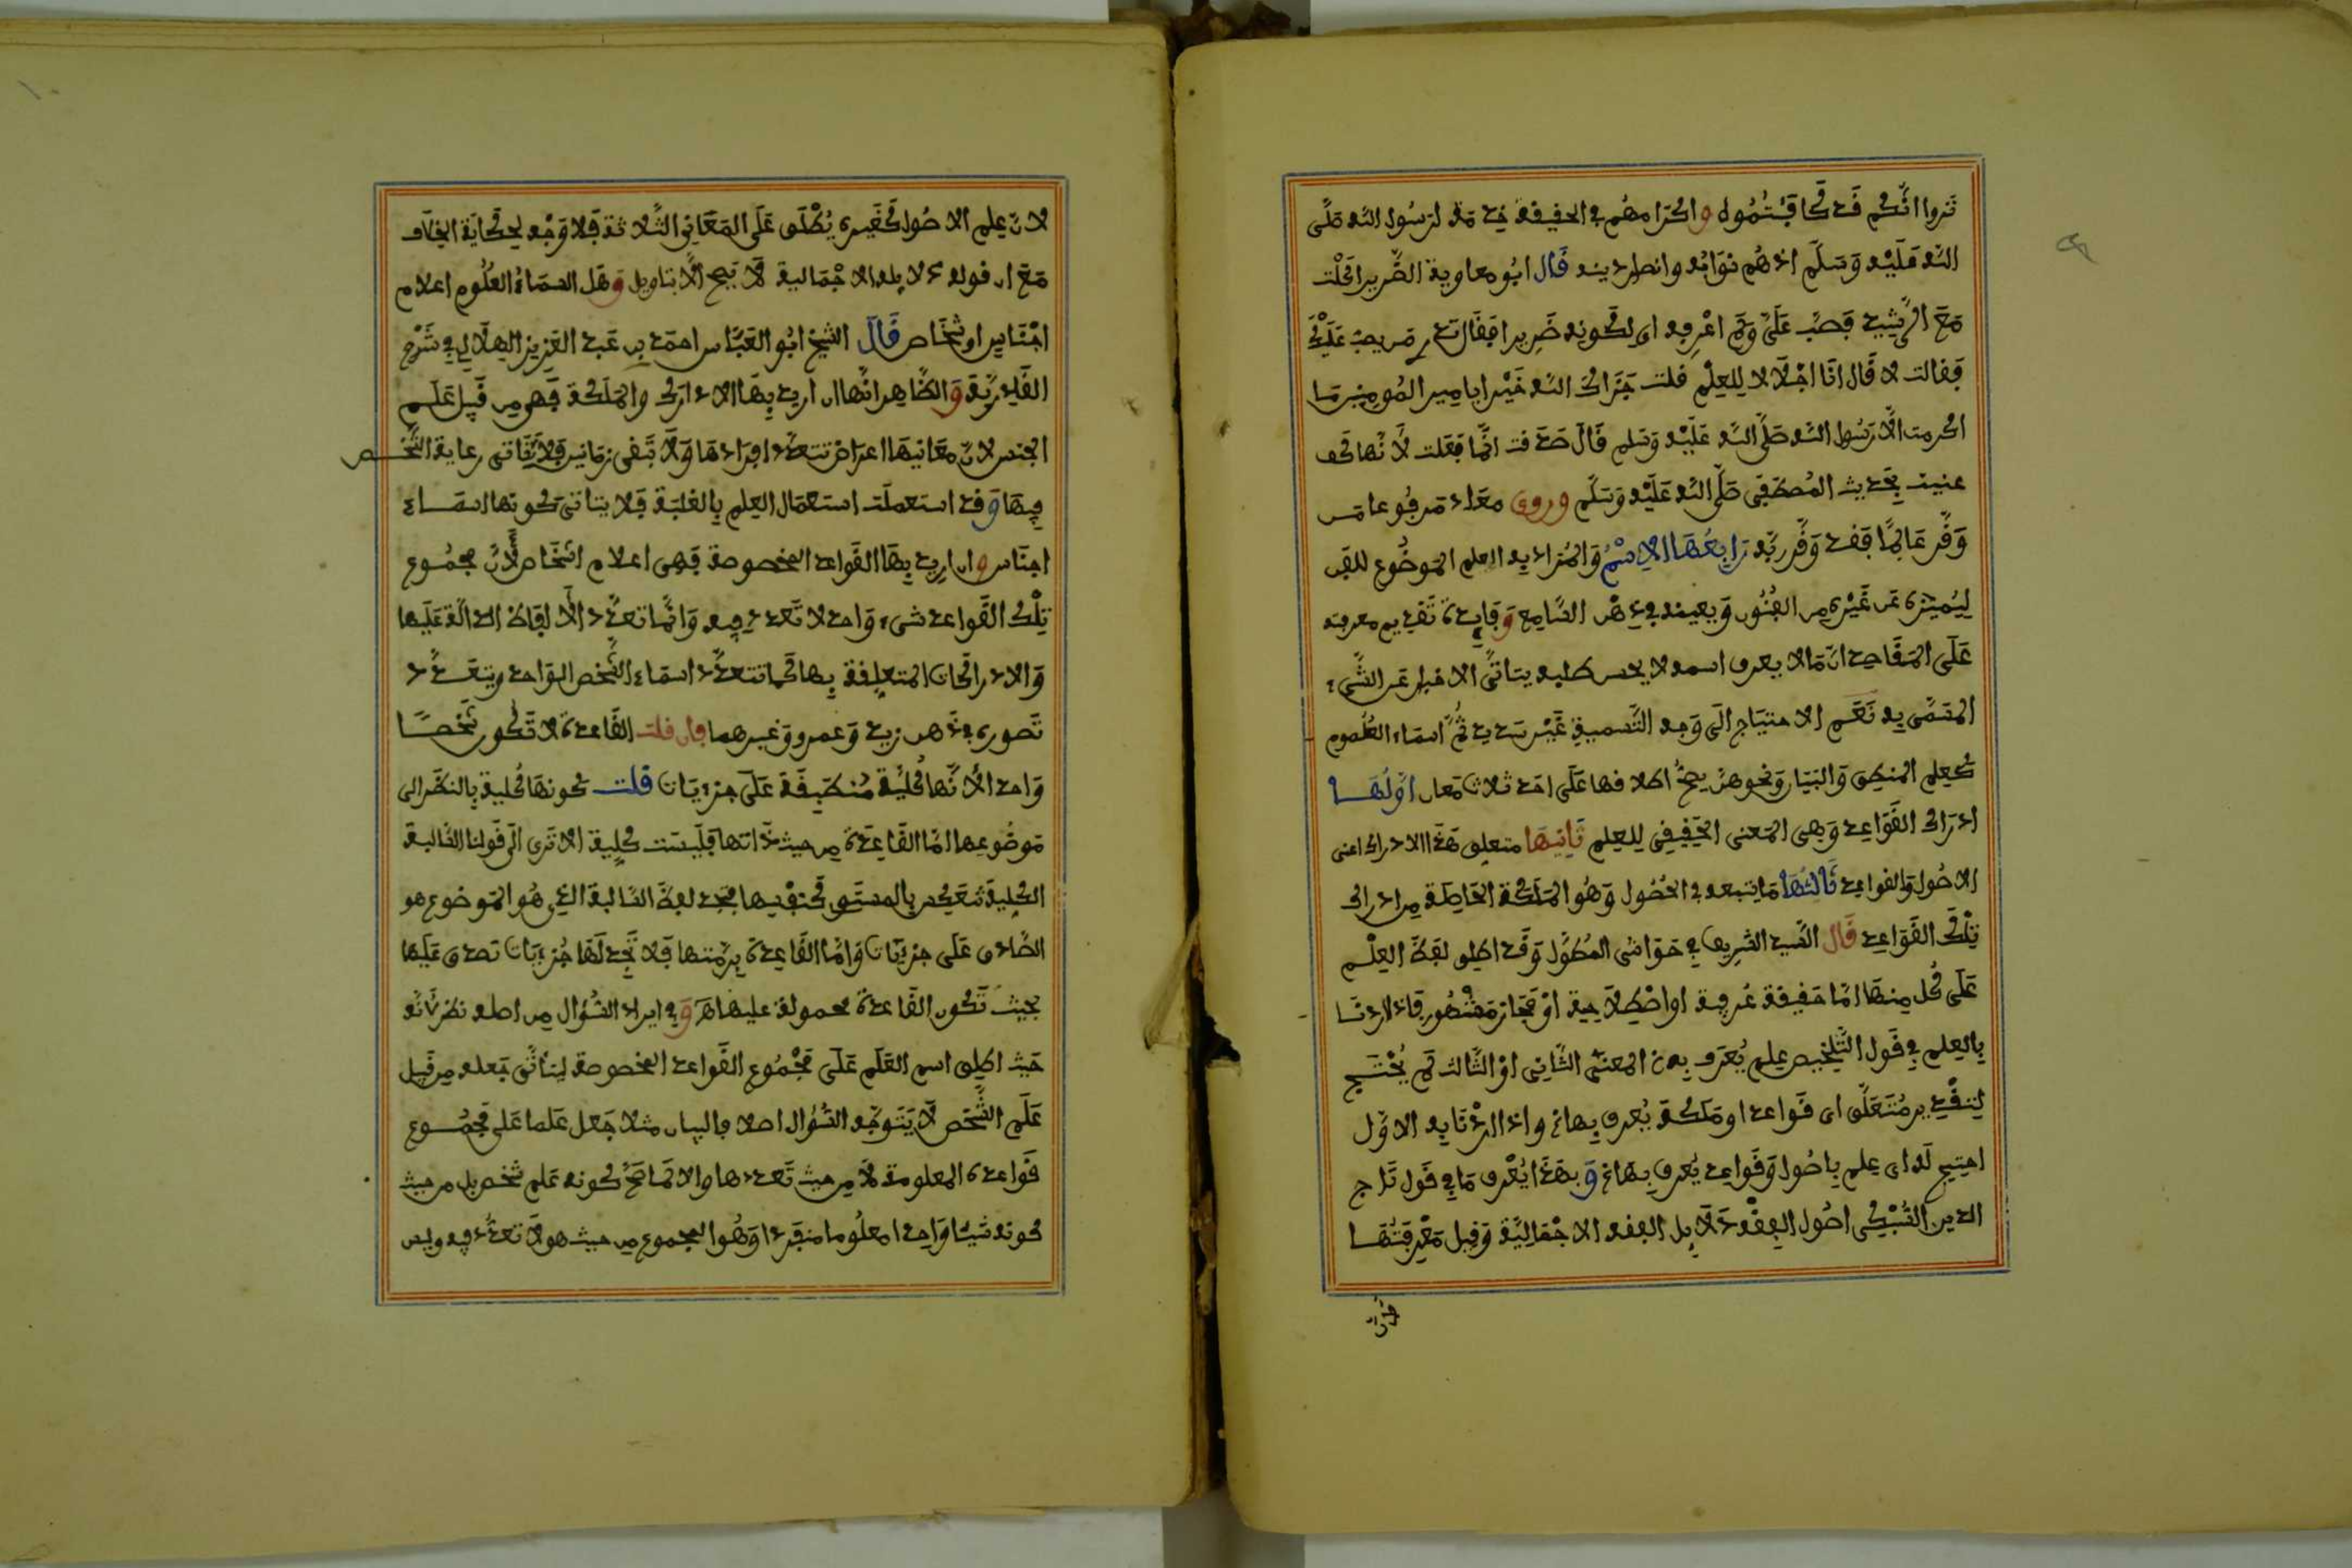 تروا انكم قد كافيتموه واكرامهم في الحقيقة خدمة لرسول الله صلى
الله عليه وسلم اذ هم نوابه وانصار دينه قال ابو معاوية الضرير اكلت
مع الرشيد فصب علي ولم اعرفه اي لكونه ضريرا فقال تدر من يصب عليك
فقالت لا قال انا اجلالا للعلم قلت جزاك الله خيرا يا امير المومنين ما
اكرمت الا رسول الله صلى الله عليه وسلم قال صدقت انما فعلت لانها كف
عنيت بحديث المصطفى صلى الله عليه وسلم وروى معاذ مرفوعا من
وقر عالما فقد وقر ربه رابعها الاسم والمراد به العلم الموضوع للفن
ليميزه عن غيره من الفنون ويعينه في ذهن السامع وفايدة تقديم معرفته
على المقاصد ان ما لا يعرف اسمه لا يحسن طلبه يتاتى الاخبار عن الشيء
المسمى به نعم الاحتياج الى وجه التسمية غير سديد ثم اسماء العلوم
كعلم المنطق والبيان ونحو هذ يصح اطلاقها على احد ثلاث معان اولها
ادراك القواعد وهي المعنى الحقيقي للعلم ثانيها متعلق هذا الادراك اعني
الاصول والقواعد ثالثها ما يتبعه في الحصول وهو الملكة الحاصلة من ادراك
تلك القواعد قال السيد الشريف في حواشي المطول وقد اطلق لفظ العلم
على كل منها اما حقيقة عرفية او اصطلاحية او مجاز مشهور فاذا اردنا
بالعلم في قول التلخيص علم يعرف به الخ المعنى الثاني او الثالث لم يحتج
لتقدير متعلق اي قواعد او ملكة يعرف بها الخ واذا اردنا به الاول
احتيج له اي علم باصول وقواعد يعرف بها الخ وبهذا يعرف ما في قول تاج
الدين السبكي اصول الفقه دلايل الفقه الاجمالية وقيل معرفتها
لان
لان علم الاصول كغيره يطلق على المعاني الثلاثة فلا وجه لحكاية الخلاف
مع ان قوله دلايله الاجمالية لا يصح الا بتاويل وهل اسماء العلوم اعلام
اجناس او شخاص قال الشيخ ابو العباس احمد بن عبد العزيز الهلالي في شرح
القادرية والظاهر انها ان اريد بها الادراك والملكة فهي من قبيل علم
الجنس لان معانيها اعراض تتعدد افرادها ولا تبقى زمانين فلا يتاتى رعاية التشخص
فيها وقد استعملت استعمال العلم بالغلبة فلا يتاتى كونها اسماء
اجناس وان اريد بها القواعد المخصوصة فهي اعلام اشخاص لان مجموع
تلك القواعد شيء واحد لا تعدد فيه وانما تعدد الالفاظ الدالة عليها
والادراكات المتعلقة بها كما تتعدد اسماء الشخص الواحد ويتعدد
تصوره في ذهن زيد وعمرو وغيرهما فان قلت القاعدة لا تكون شخصا
واحدا لانها كلية منطبقة على جزءيات قلت كونها كلية بالنظر الى
موضوعها اما القاعدة من حيث ذاتها فليست كلية الا ترى الى قولنا السالبة
الكلية تنعكس بالمستوى كنفسها فتجد لفظ السالبة الذي هو الموضوع هو
الصادق على جزءيات واما القاعدة برمتها فلا تجد لها جزءيات تصدق عليها
بحيث تكون القاعدة محمولة عليها اه وفي ايراد السؤال من اصله نظر لانه
حيث اطلق اسم العلم على مجموع القواعد المخصوصة ليتاتى جعله من قبيل
علم الشخص لا يتوجه السؤال اصلا فالبيان مثلا جعل علما على مجموع
قواعده المعلومة لا من حيث تعددها والا لما صح كونه علم شخص بل من حيث
كونه شيئا واحدا معلوما منفردا وهو المجموع من حيث هو لا تعدد فيه وليس